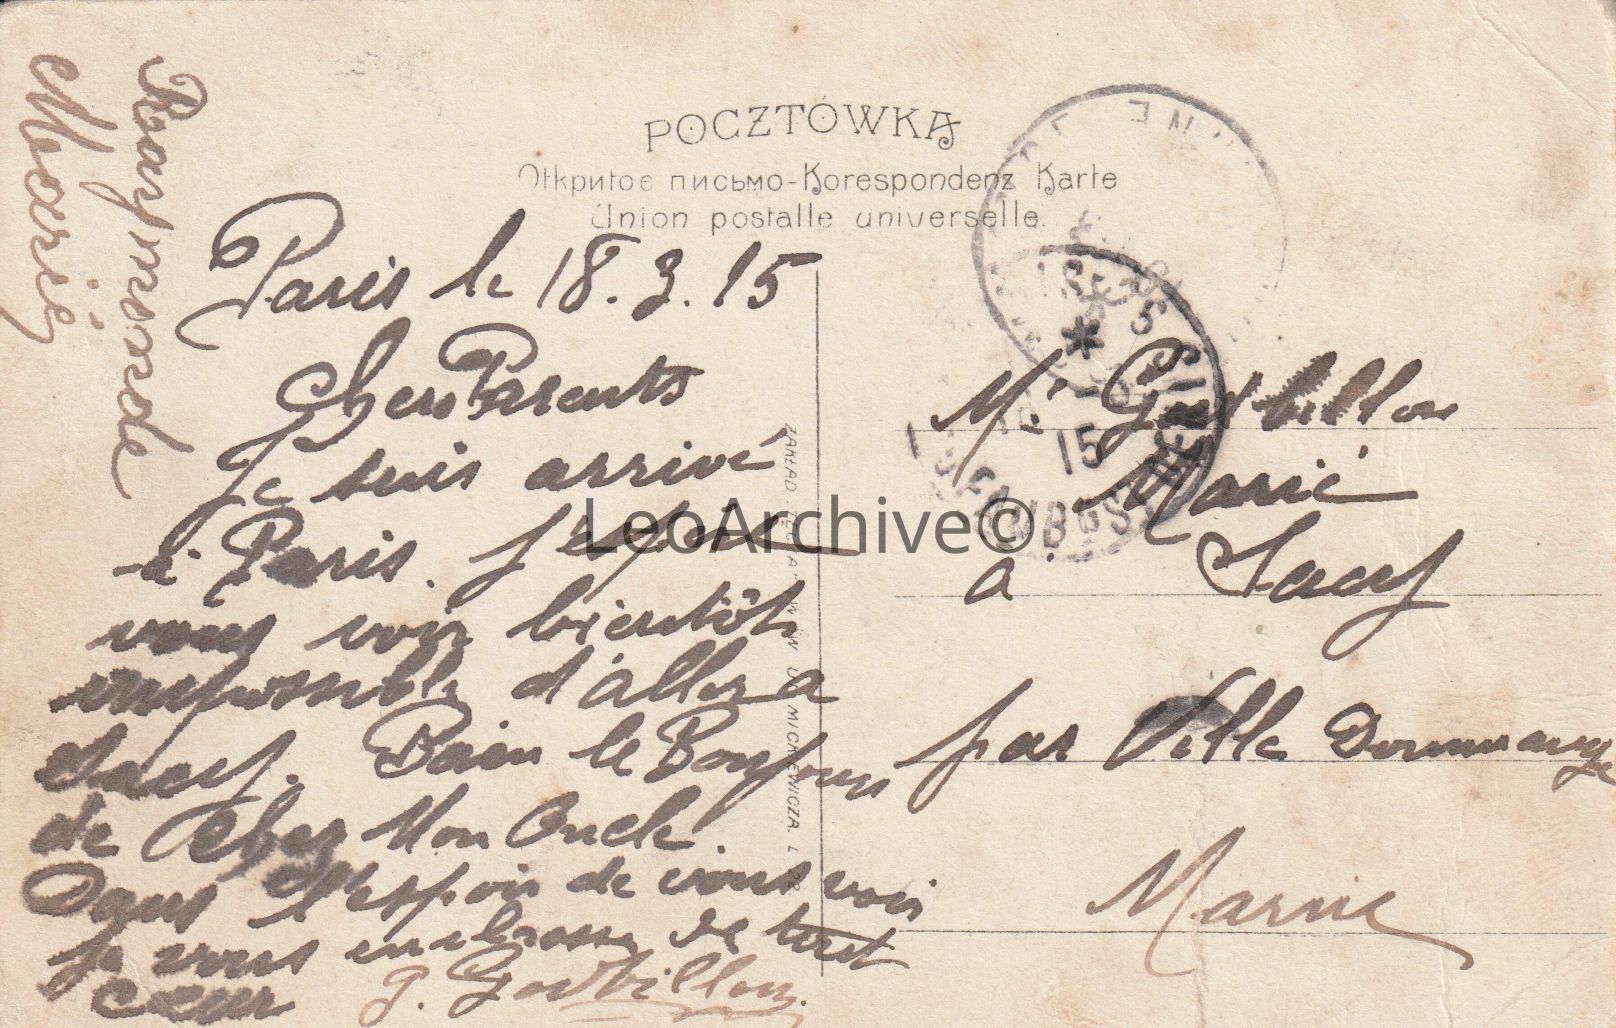 POCZTÓWKA
Открытое письмо-Korespondenz Karte
Union postalle universelle.
Raymonde
Marie
Paris le 18.3.15
Chers Parents
Je suis arrivé
à Paris. J'espère
vous voir bientôt
impossible d'aller a
Sacy. Bien le Bonjour
de chez Mon Oncle
Dans l'espoir de vous voir
je vous embrasse de tout
cœur G. Gorbillon
Mr Gorbillon
Marié
a Sacy
par Ville Dommange
Marne
15
LeoArchive©